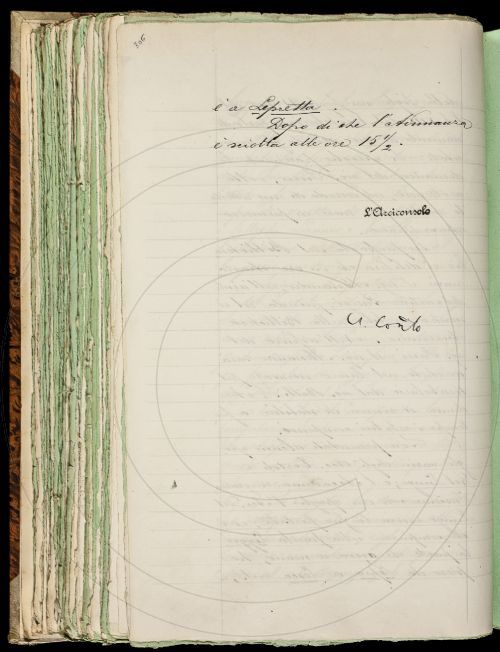 306
è a Lepretta.
Dopo di che l'adunanza
è sciolta alle ore 15 1/2.
L'Arciconsolo